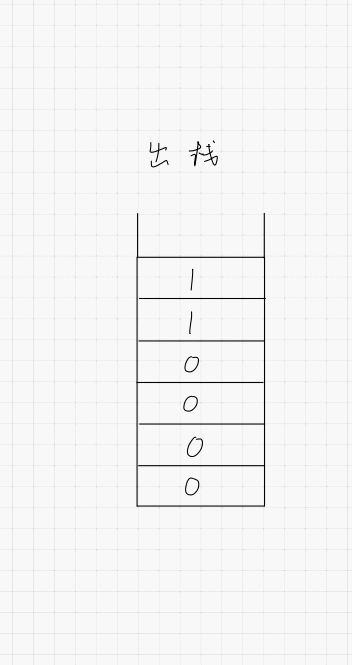 出栈
1
1
0
0
0
0